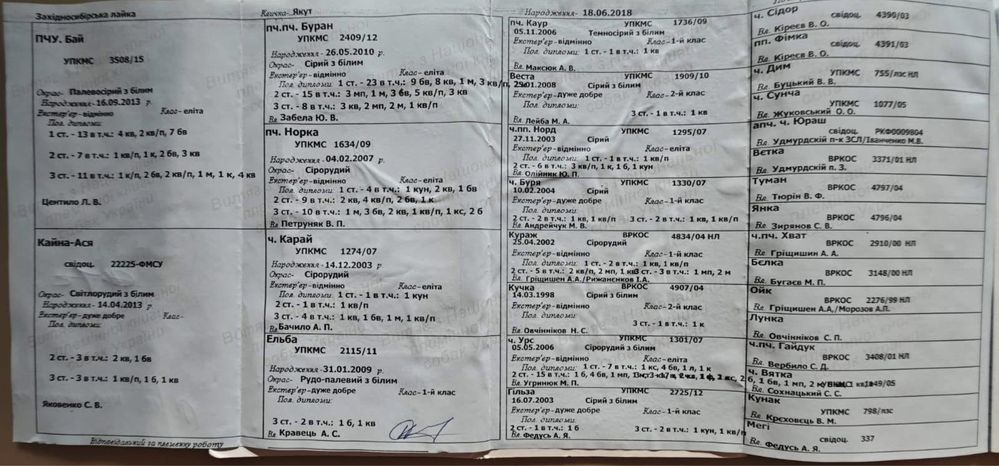 Західносибірська лайка
Кличка- Якут
Народження - 18.06.2018
ПЧУ. Бай
УПКМС 3508/15
Окрас- Палевосірий з білим
Народження -16.09.2013 р.
Екстер'єр -відмінно Клас- еліта
Пол. дипломи:
1 ст. - 13 в т.ч.: 4 кв, 2 кв/п, 7 бв
2 ст. - 7 в т.ч.: 1 кв/п, 1 к, 2 бв, 3 кв
3 ст. - 11 в т.ч.: 1 к/п, 2 бв, 2 кв/п, 1 м, 1 к, 4 кв
Центило Л. В.
Кайна-Ася
свідоц. 22225-ФМСУ
Окрас- Світлорудий з білим
Народження -14.04.2013 р.
Екстер'єр -дуже добре Клас-
Пол. дипломи:
2 ст. - 3 в т.ч.: 2 кв, 1 бв
3 ст. - 3 в т.ч.: 1 кв/п, 1 б, 1 кв
Яковенко С. В.
Відповідальний за племінну роботу
пч.пч. Буран
УПКМС 2409/12
Народження - 26.05.2010 р.
Окрас- Сірий з білим
Екстер'єр -відмінно Клас- еліта
Пол. дипломи: 1 ст. - 23 в т.ч.: 9 бв, 8 кв, 1 м, 3 кв/п,
2 ст. - 15 в т.ч.: 3 мп, 1 м, 3 бв, 5 кв/п, 3 кв
3 ст. - 8 в т.ч.: 3 кв, 2 мп, 2 м, 1 кв/п
Вл. Забела Ю. В.
пч. Норка
УПКМС 1634/09
Народження - 04.02.2007 р.
Окрас- Сірорудий
Екстер'єр -відмінно Клас- еліта
Пол. дипломи: 1 ст. - 4 в т.ч.: 1 кун, 2 кв, 1 бв
2 ст. - 9 в т.ч.: 2 кв, 4 кв/п, 2 бв, 1 к
3 ст. - 10 в т.ч.: 1 м, 3 бв, 2 кв, 1 кв/п, 1 кс, 2 б
Вл. Петруняк В. П.
ч. Карай
УПКМС 1274/07
Народження - 14.12.2003 р.
Окрас- Сірорудий
Екстер'єр -відмінно Клас- еліта
Пол. дипломи: 1 ст. - 1 в т.ч.: 1 кун
2 ст. - 1 в т.ч.: 1 кв/п
3 ст. - 4 в т.ч.: 1 кв, 1 бв, 1 м, 1 кв/п
Вл. Бачило А. П.
Ельба
УПКМС 2115/11
Народження -31.01.2009 р.
Окрас- Рудо-палевий з білим
Екстер'єр -дуже добре Клас -1-й клас
Пол. дипломи:
3 ст. - 2 в т.ч.: 1 б, 1 кв
Вл. Кравець А. С.
пч. Каур УПКМС 1736/09
05.11.2006 Темносірий з білим
Екстер'єр -відмінно Клас-1-й клас
Пол. дипломи: 1 ст. - 1 в т.ч.: 1 кв
Вл. Максюк А. В.
Веста УПКМС 1909/10
.01.2008 Сірий з білим
Екстер'єр -дуже добре Клас-2-й клас
Пол. дипломи:
3 ст. - 1 в т.ч.: 1 кв
Вл. Лейба М. А.
ч.пп. Норд УПКМС 1295/07
27.11.2003 Сірий
Екстер'єр -відмінно Клас-еліта
Пол. дипломи: 1 ст. - 1 в т.ч.: 1 кв/п
2 ст. - 6 в т.ч.: 3 кв/п, 1 к, 1 б, 1 кун
Вл. Олійник Ю. П.
ч. Буря УПКМС 1330/07
10.02.2004 Сірий
Екстер'єр -дуже добре Клас-1-й клас
Пол. дипломи:
2 ст. - 2 в т.ч.: 1 кв, 1 кв/п 3 ст. - 2 в т.ч.: 1 кв, 1 кв/п
Вл. Андрейчук М. В.
Кураж ВРКОС 4834/04 НЛ
25.04.2002 Сірорудий
Екстер'єр -відмінно Клас-1-й клас
Пол. дипломи: 1 ст. - 2 в т.ч.: 1 кв, 1 кв/п
2 ст. - 5 в т.ч.: 2 кв/п, 2 мп, 1 кв 3 ст. - 3 в т.ч.: 1 мп, 2 м
Вл. Гріщишен А.А./Рижансняков І.А.
Кучка ВРКОС 4907/04
14.03.1998 Сірий з білим
Екстер'єр -відмінно Клас-2-й клас
Пол. дипломи:
3 ст. - 1 в т.ч.: 1 к
Вл. Овчінніков Н. С.
ч. Урс УПКМС 1301/07
05.05.2006 Сірорудий з білим
Екстер'єр -відмінно Клас-еліта
Пол. дипломи: 1 ст. - 7 в т.ч.: 1 кс, 4 бв, 1 л, 1 к
2 ст. - 15 в т.ч.: 1 б, 4 бв, 1 мп,
Вл. Угринюк М. П.
Гільза УПКМС 2725/12
16.07.2003 Сірий з білим
Екстер'єр -дуже добре Клас-1-й клас
Пол. дипломи:
2 ст. - 1 в т.ч.: 1 б 3 ст. - 2 в т.ч.: 1 кун, 1 кв/п
Вл. Федусь А. Я.
ч. Сідор
свідоц. 4390/03
Вл. Кірєєв В. О.
пп. Фімка
свідоц. 4391/03
Вл. Кірєєв В. О.
ч. Дим
УПКМС 755/лзс НЛ
Вл. Буцький В. В.
ч. Сунча
УПКМС 1077/05
Вл. Жуковський О. О.
апч. ч. Юраш
свідоц. РКФ0009804
Вл. Удмурдскій п-к ЗСЛ/Іванченко М.В.
Вєтка
ВРКОС 3371/01 НЛ
Вл. Удмурдскій п. З.
Туман
ВРКОС 4797/04
Вл. Тюрін В. Ф.
Янка
ВРКОС 4796/04
Вл. Зирянов С. В.
ч.пч. Хват
ВРКОС 2910/00 НЛ
Вл. Гріщишин А. А.
Бєлка
ВРКОС 3148/00 НЛ
Вл. Бугаєв М. П.
Ойк
ВРКОС 2276/99 НЛ
Вл. Гріщишен А.А./Морозов А.П.
Лунка
Вл. Овчінніков С. П.
ч.пч. Гайдук
ВРКОС 3408/01 НЛ
Вл. Вербило С. Д.
ч. Вятка
Вл. Сохнацький С. С.
Кунак
УПКМС 798/лзс
Вл. Крєховєць В. М.
Мегі
свідоц. 337
Вл. Федусь А. Я.